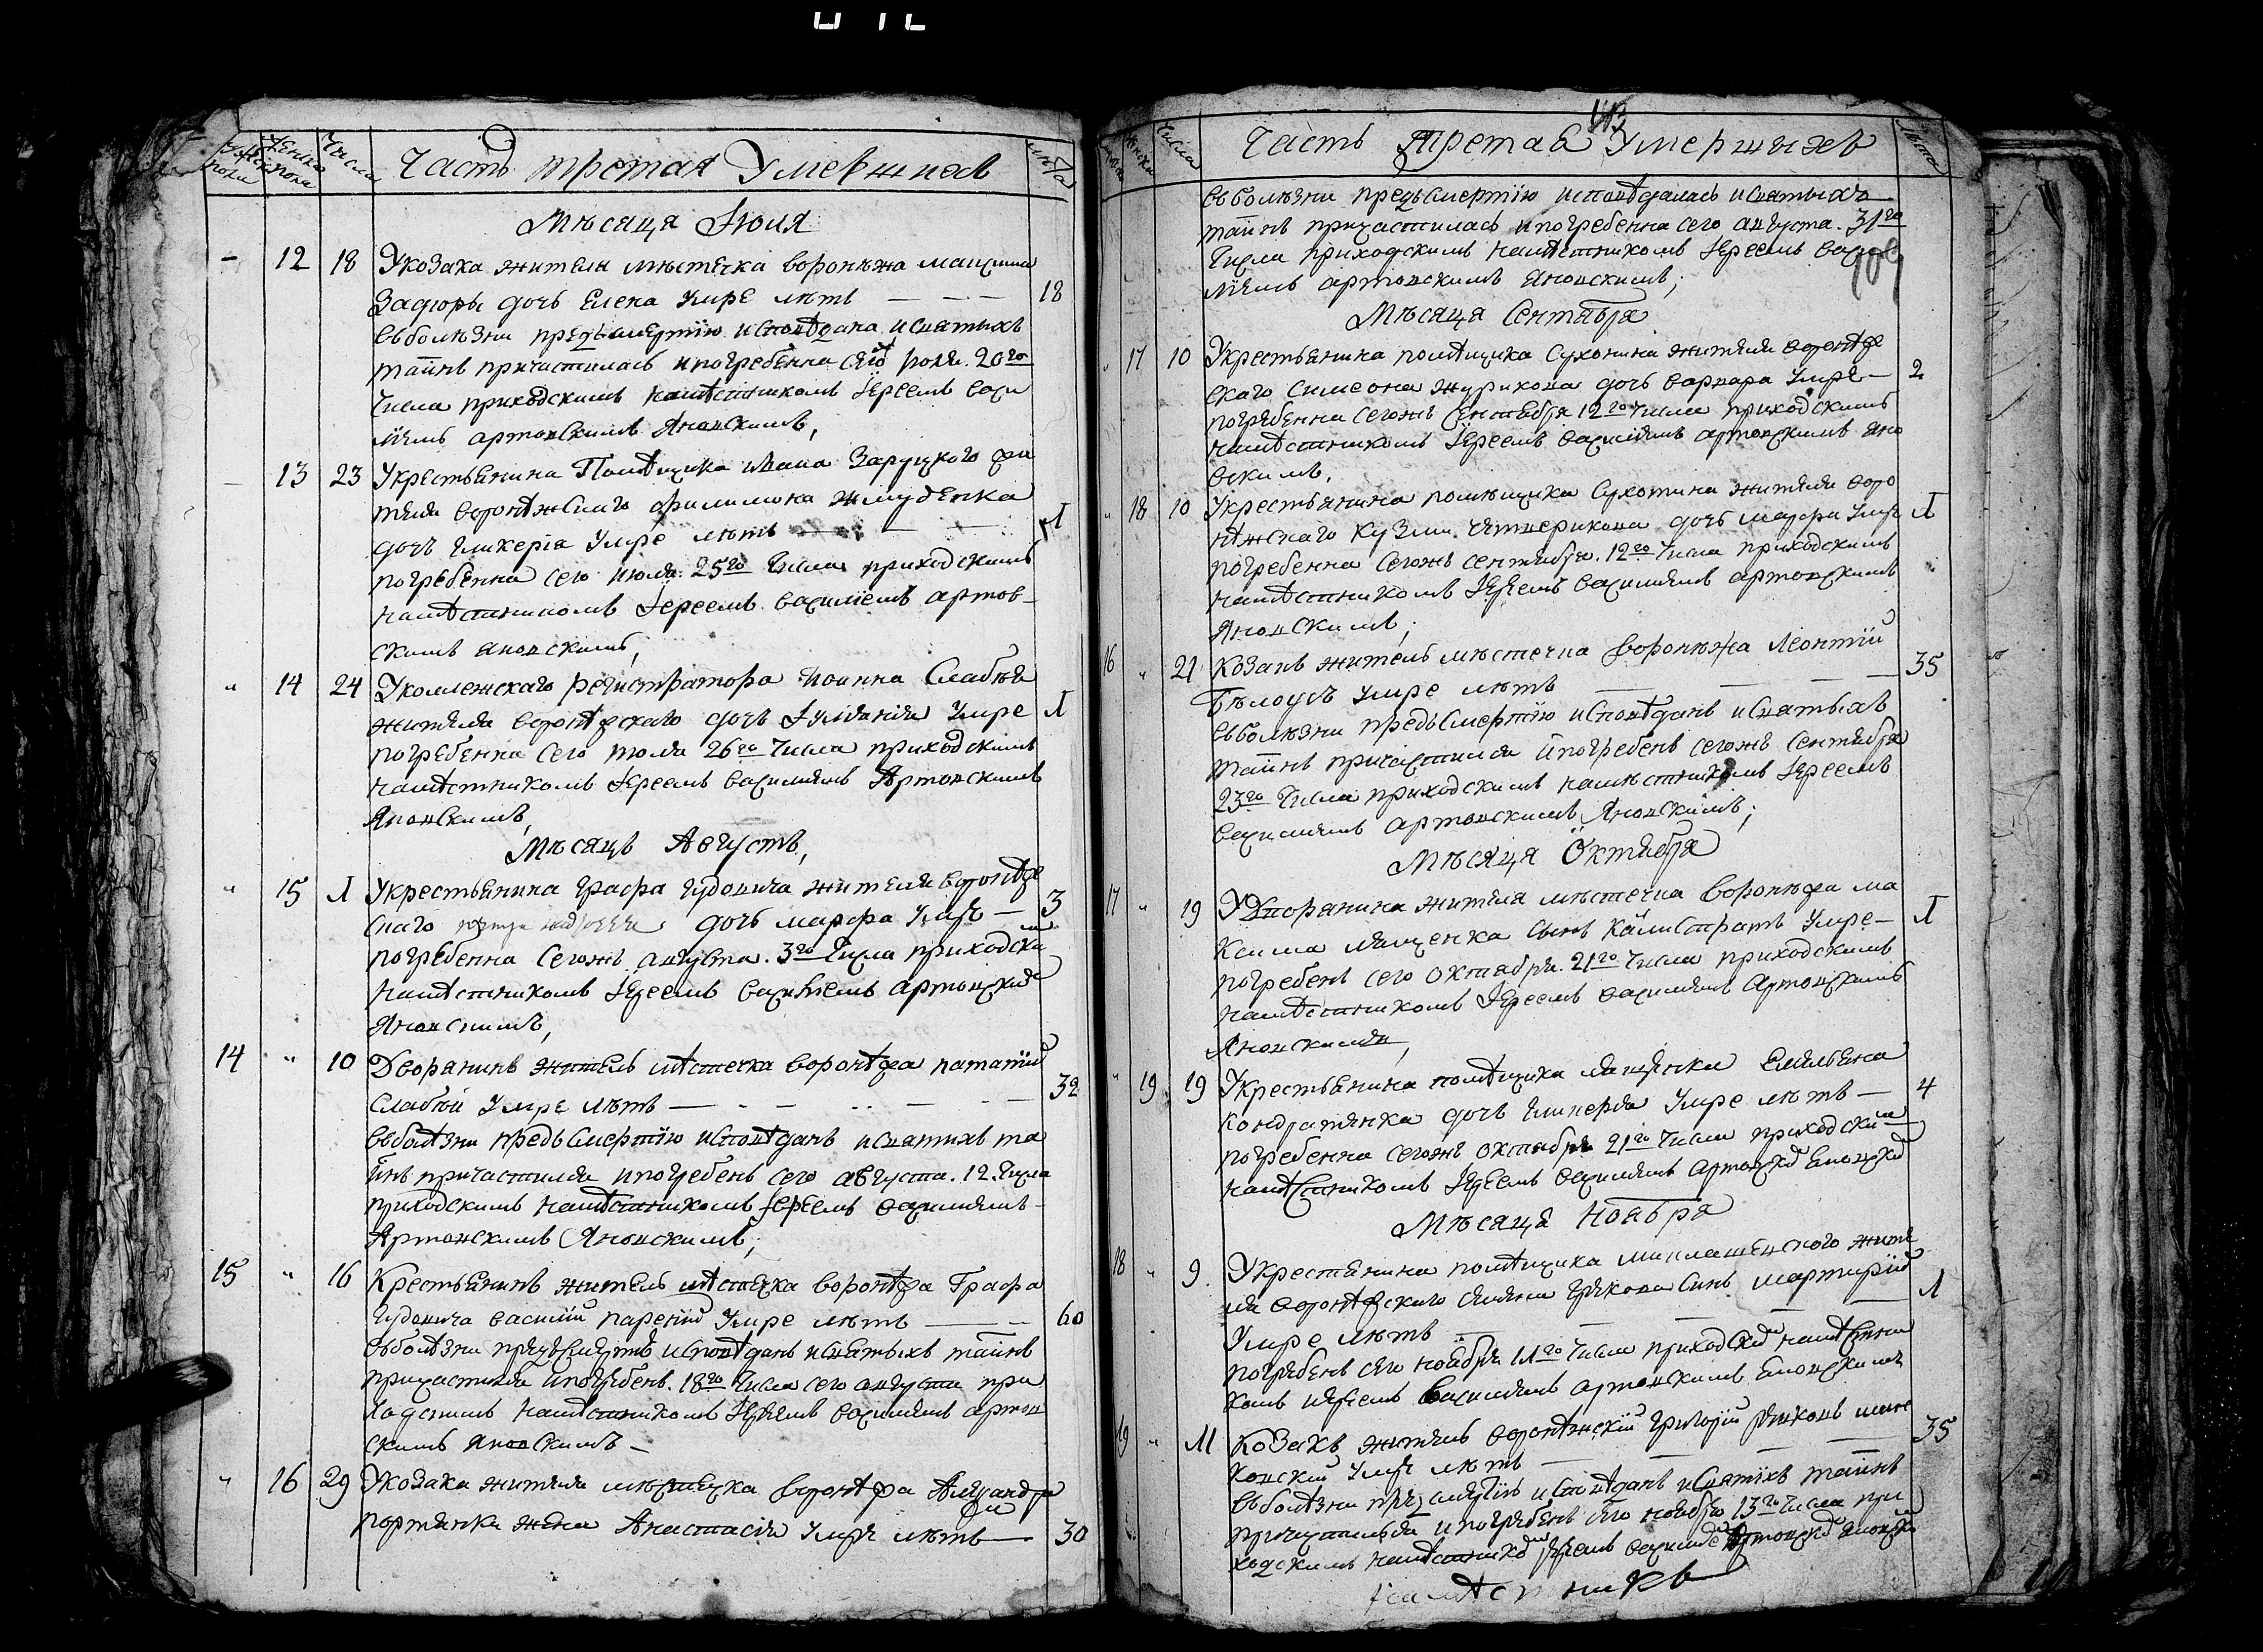 Часть третая Умевшихъ
лѣта
Числа
Мѣсяца Июля
12 18 Укозака жителя мѣстечка воронѣжа максима
Задюры дочь Елена умре лѣтъ — — — 18
въболѣзни предъсмертїю исповѣдана исвятыхъ
таинъ причастилась ипогребенна сего июля 20го
Числа приходскимъ намѣстникомъ Iереемъ васи
лїемъ артовскимъ Яновскимъ,
13 23 Укрестьянина Помѣщика ивана Заруцкого жи
теля воронѣжскаго филимона жмуденка
дочь гликерїа Умре лѣтъ — — 1
погребенна сего июля 25го Числа приходскимъ
намѣстникомъ Iереемъ василїемъ артов-
скимъ яновскимъ,
14 24 Уколежскаго регистратора Иоанна Слабѣя
жителя воронѣжскаго дочь Iулїанїя Умре 1
погребенна сего июля 26го Числа приходскимъ
намѣстникомъ Iереемъ василиемъ Артовскимъ
Яновскимъ,
Мѣсяцъ Августъ,
15 1 Укрестьянина графа гудовича жителя воронѣж
скаго дочь марфа Умре — 3
погребенна сегожъ августа 3го Числа приходским
намѣстникомъ Iереемъ василїемъ артовским
Яновскимъ,
14 10 Дворянинъ житель мѣстечка воронѣжа патапїй
Слабѣй Умре лѣтъ — — — 32
въболѣзни предъсмертїю исповѣданъ исвятихъ та
инъ причастился ипогребенъ сего августа. 12. Числа
приходскимъ намѣстникомъ Iереемъ василиемъ
Артовскимъ Яновскимъ;
15 16 Крестьянинъ житель мѣстечка воронѣжа Графа
гудовича василий Умре лѣтъ — — 60
въболѣзни предъсмертїю исповѣданъ исвятыхъ таинъ
причастился ипогребенъ 18го Числа сего августа при
ходскимъ намѣстникомъ Iереемъ василиемъ артов
скимъ яновскимъ —
16 29 Укозака жителя мѣстечка воронѣжа Александра
портянки жена Анастасїя умре лѣтъ — 30
Часть Третая Умершыхъ
113
109
Числа
лѣта
въболѣзни предъсмертїю исповѣдалась исвятыхъ
таинъ причастилась ипогребенна сего августа. 31го
Числа приходскимъ намѣстникомъ Iереемъ васи
лїемъ артовскимъ яновскимъ;
Мѣсяца Сентября
17 10 Укрестьянина помѣщика Сухонина жителя воронѣж
скаго Симеона журикова дочь варвара умре — 2
погребенна сегожъ сентября 12го Числа приходскимъ
намѣстникомъ Iереемъ василїемъ артовскимъ яно
вскимъ,
18 10 Укрестьянина помѣщика Сухотина жителя воро
нѣжскаго Кузми Четверикова дочь марфа умре 1
погребенна сегожъ сентября. 12го Числа приходскимъ
намѣстникомъ Iереемъ василиемъ артовскимъ
Яновскимъ,
16 21 Козакъ житель мѣстечка воронѣжа Леонтїй
Бѣлоусъ умре лѣтъ — — — 35
въболѣзни предъсмертїю исповѣданъ исвятыхъ
таинъ причастился ипогребенъ сегожъ сентября
23го Числа приходскимъ намѣстникомъ Iереемъ
василиемъ артовскимъ Яновскимъ;
Мѣсяца Октября
17 19 Удворянина жителя мѣстечка воронѣжа ма
ксима лященка сынъ Калистратъ Умре — 1
погребенъ сего октября. 21го Числа приходскимъ
намѣстникомъ Iереемъ василиемъ артовскимъ
Яновскимъ,
19 19 Укрестьянина помѣщика лященки Емельяна
Кондратенка дочь гликерїя Умре лѣтъ — 4
погребенна сегожъ октября 21го Числа приходским
намѣстникомъ Iереемъ василиемъ артовским яновским
Мѣсяца Ноября
18 9 Укрестянина помѣщика миклашевского жите
ля воронѣжского Грекова Синъ мартирїй
Умре лѣтъ — — — 1
погребенъ сего ноября 11го Числа приходским намѣстни
комъ иереемъ василиемъ артовскимъ яновскимъ
19 11 Козакъ житель воронѣжскїй григорїй
умре лѣтъ — — 35
въболѣзни предсмертїю исповѣданъ исвятихъ таинъ
причастился ипогребенъ сего ноября 13го числа при
ходскимъ намѣстником Iереемъ василием артовским яновским
намѣстникъ